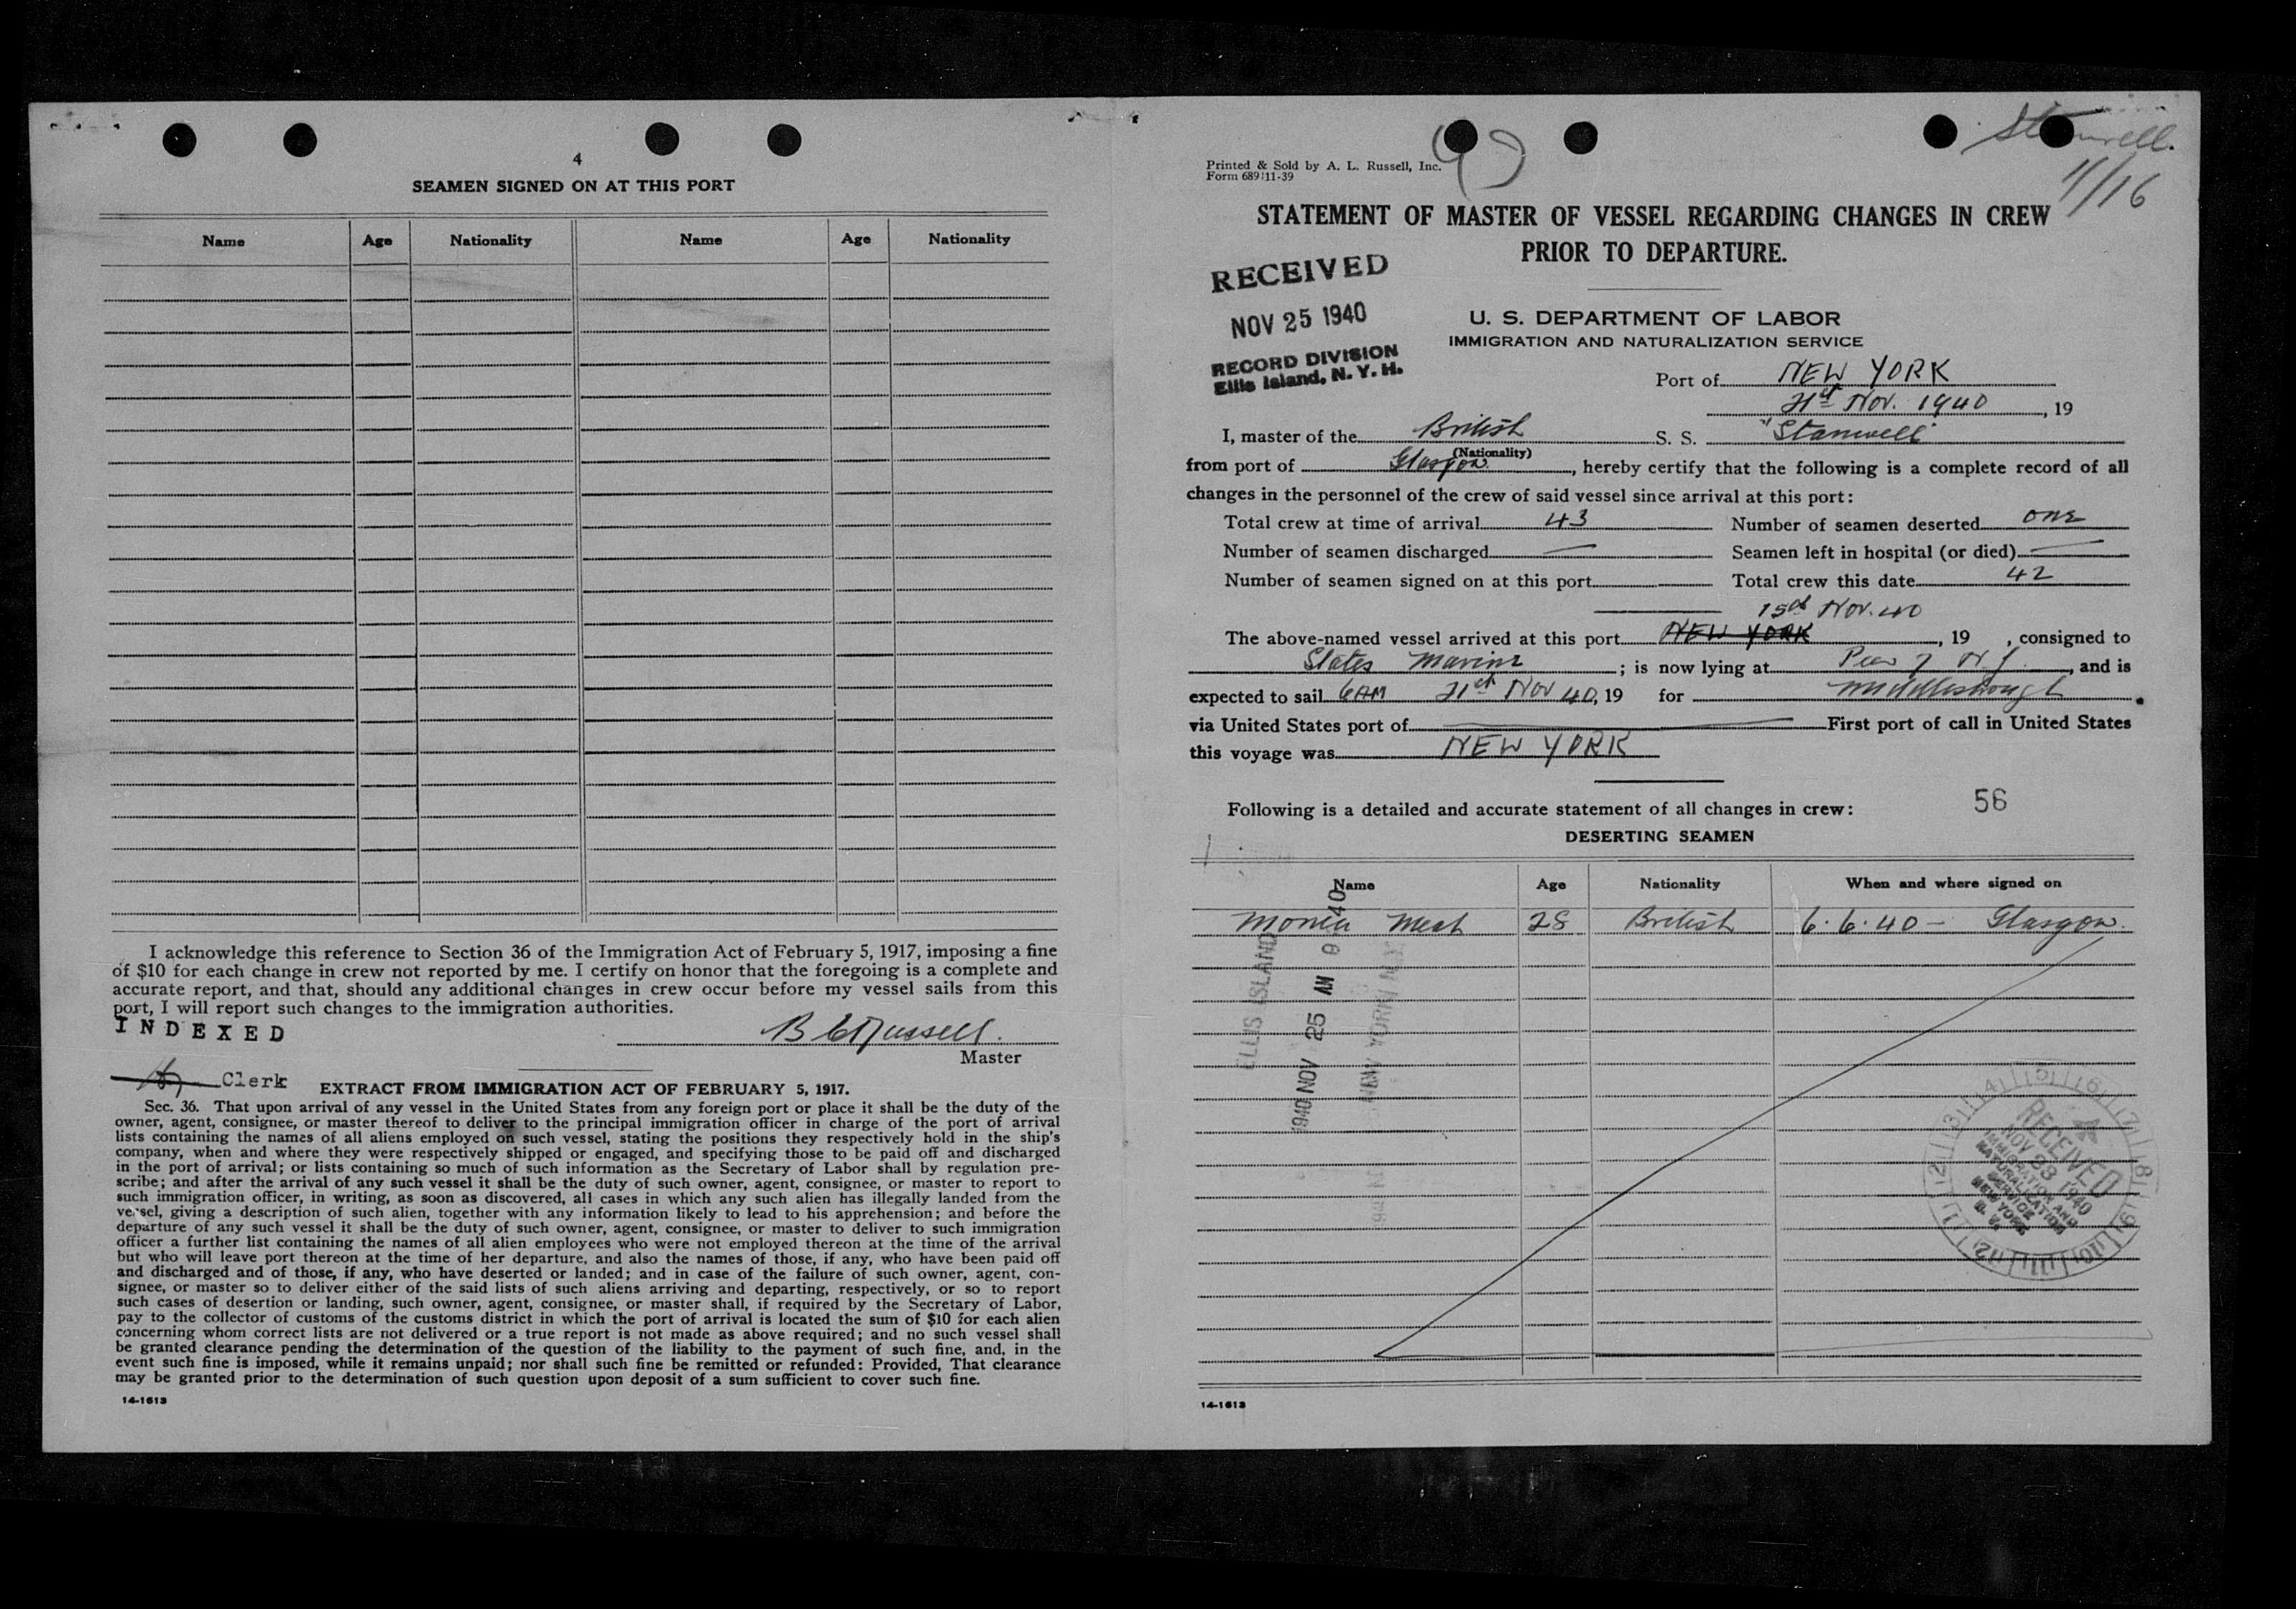 4
SEAMEN SIGNED ON AT THIS PORT
Name Age Nationality Name Age Nationality
I acknowledge this reference to Section 36 of the Immigration Act of February 5, 1917, imposing a fine
of $10 for each change in crew not reported by me. I certify on honor that the foregoing is a complete and
accurate report, and that, should any additional changes in crew occur before my vessel sails from this
port, I will report such changes to the immigration authorities.
INDEXED
Russell.
Master
Clerk
EXTRACT FROM IMMIGRATION ACT OF FEBRUARY 5, 1917.
Sec. 36. That upon arrival of any vessel in the United States from any foreign port or place it shall be the duty of the
owner, agent, consignee, or master thereof to deliver to the principal immigration officer in charge of the port of arrival
lists containing the names of all aliens employed on such vessel, stating the positions they respectively hold in the ship's
company, when and where they were respectively shipped or engaged, and specifying those to be paid off and discharged
in the port of arrival; or lists containing so much of such information as the Secretary of Labor shall by regulation pre-
scribe; and after the arrival of any such vessel it shall be the duty of such owner, agent, consignee, or master to report to
such immigration officer, in writing, as soon as discovered, all cases in which any such alien has illegally landed from the
vessel, giving a description of such alien, together with any information likely to lead to his apprehension; and before the
departure of any such vessel it shall be the duty of such owner, agent, consignee, or master to deliver to such immigration
officer a further list containing the names of all alien employees who were not employed thereon at the time of the arrival
but who will leave port thereon at the time of her departure, and also the names of those, if any, who have been paid off
and discharged and of those, if any, who have deserted or landed; and in case of the failure of such owner, agent, con-
signee, or master so to deliver either of the said lists of such aliens arriving and departing, respectively, or so to report
such cases of desertion or landing, such owner, agent, consignee, or master shall, if required by the Secretary of Labor,
pay to the collector of customs of the customs district in which the port of arrival is located the sum of $10 for each alien
concerning whom correct lists are not delivered or a true report is not made as above required; and no such vessel shall
be granted clearance pending the determination of the question of the liability to the payment of such fine, and, in the
event such fine is imposed, while it remains unpaid; nor shall such fine be remitted or refunded: Provided, That clearance
may be granted prior to the determination of such question upon deposit of a sum sufficient to cover such fine.
14-1613
Stanwell.
11/16
Printed & Sold by A. L. Russell, Inc.
Form 689 11-39
STATEMENT OF MASTER OF VESSEL REGARDING CHANGES IN CREW
PRIOR TO DEPARTURE.
RECEIVED
NOV 25 1940
RECORD DIVISION
Ellis Island, N. Y. H.
U. S. DEPARTMENT OF LABOR
IMMIGRATION AND NATURALIZATION SERVICE
Port of NEW YORK
21st Nov. 1940, 19
I, master of the British S. S. "Stanwell"
(Nationality)
from port of Glasgow, hereby certify that the following is a complete record of all
changes in the personnel of the crew of said vessel since arrival at this port:
Total crew at time of arrival 43 Number of seamen deserted one
Number of seamen discharged — Seamen left in hospital (or died) —
Number of seamen signed on at this port Total crew this date 42
15th Nov. 40
The above-named vessel arrived at this port NEW YORK, 19 , consigned to
States Marine; is now lying at Pier 7 N.J., and is
expected to sail 6AM 21st Nov 40, 19 for Middlesbrough.
via United States port of First port of call in United States
this voyage was NEW YORK
Following is a detailed and accurate statement of all changes in crew: 56
DESERTING SEAMEN
Name Age Nationality When and where signed on
28 British 6.6.40 - Glasgow.
ELLIS ISLAND
1940 NOV 25 AM 9 40
NEW YORK N.Y.
RECEIVED
NOV 23 1940
IMMIGRATION AND
NATURALIZATION
SERVICE
NEW YORK
N. Y.
14-1613